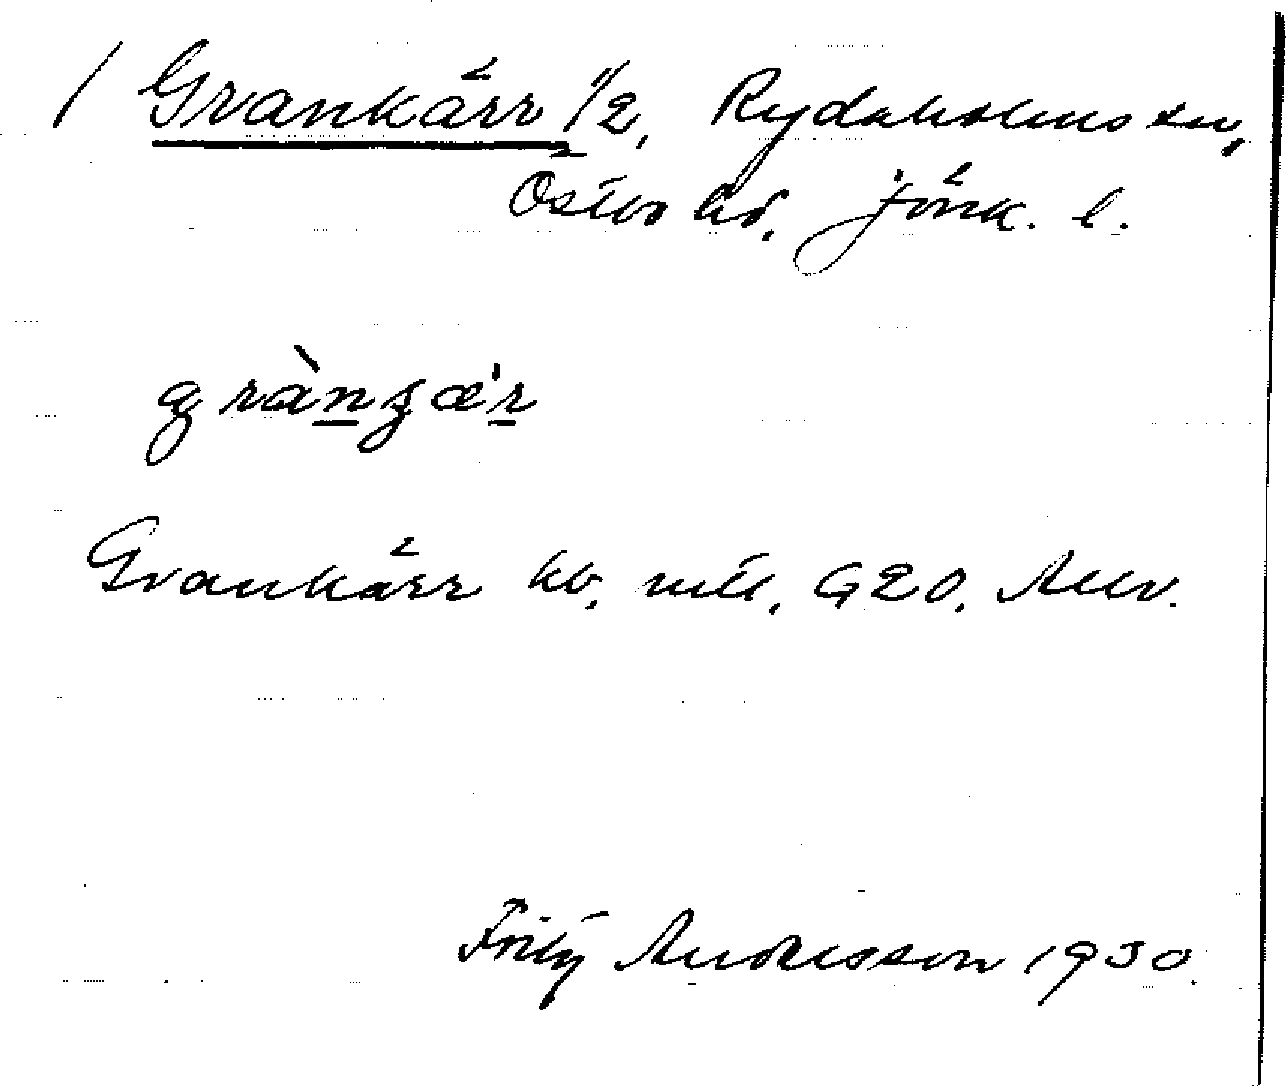 / Grankärr 1/2, Rydaholms sn,
Östbo hd, Jönk. l.
grànʒæ'r
Grankärr hv. mtl, G20. Anv.
Andersson 1930.